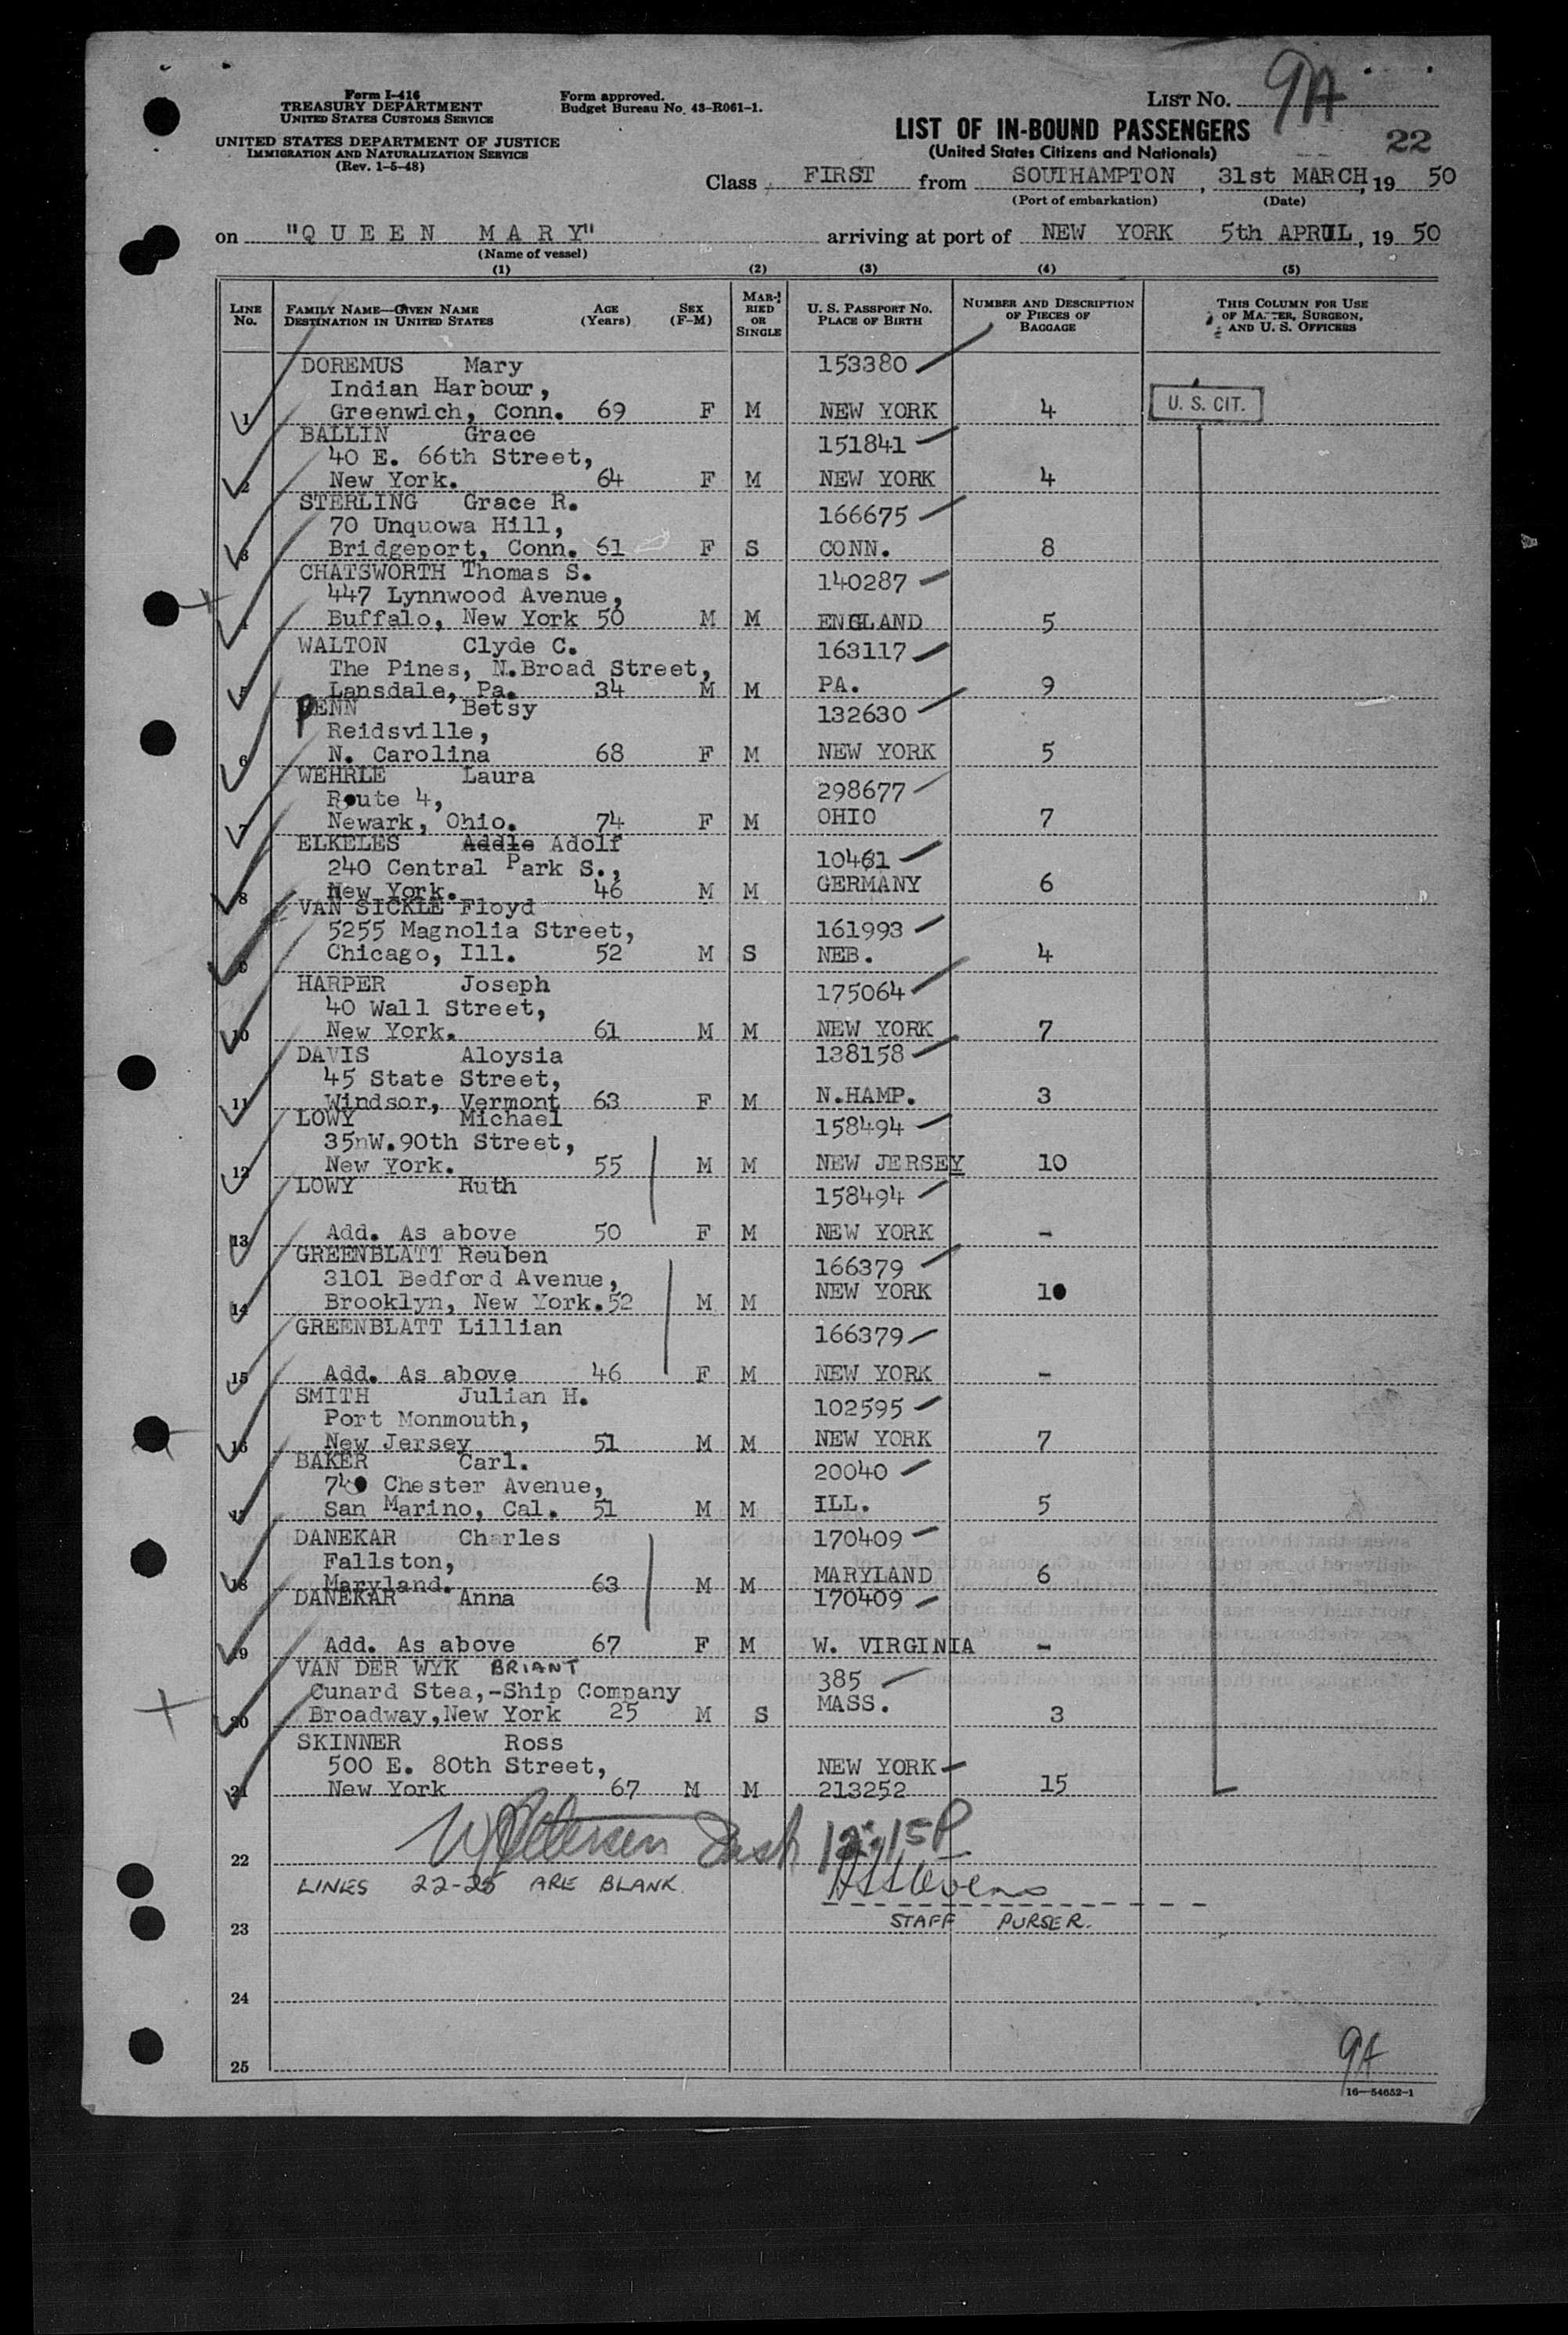 Form I-416
TREASURY DEPARTMENT
UNITED STATES CUSTOMS SERVICE
UNITED STATES DEPARTMENT OF JUSTICE
IMMIGRATION AND NATURALIZATION SERVICE
(Rev. 1-5-48)
Form approved.
Budget Bureau No. 43-R061-1.
LIST NO. 9A
LIST OF IN-BOUND PASSENGERS
(United States Citizens and Nationals)
22
Class FIRST from SOUTHAMPTON, 31st MARCH, 19 50
(Port of embarkation) (Date)
on "QUEEN MARY" arriving at port of NEW YORK 5th APRIL, 19 50
(Name of vessel)
(1) (2) (3) (4) (5)
LINE NO. FAMILY NAME—GIVEN NAME DESTINATION IN UNITED STATES AGE (Years) SEX (F-M) MARRIED OR SINGLE U. S. PASSPORT NO. PLACE OF BIRTH NUMBER AND DESCRIPTION OF PIECES OF BAGGAGE THIS COLUMN FOR USE OF MASTER, SURGEON, AND U. S. OFFICERS
DOREMUS Mary 153380
Indian Harbour,
1 Greenwich, Conn. 69 F M NEW YORK 4 U. S. CIT.
BALLIN Grace 151841
40 E. 66th Street,
2 New York. 64 F M NEW YORK 4
STERLING Grace R. 166675
70 Unquowa Hill,
3 Bridgeport, Conn. 61 F S CONN. 8
CHATSWORTH Thomas S. 140287
447 Lynnwood Avenue,
4 Buffalo, New York 50 M M ENGLAND 5
WALTON Clyde C. 163117
The Pines, N.Broad Street,
5 Lansdale, Pa. 34 M M PA. 9
PENN Betsy 132630
Reidsville,
6 N. Carolina 68 F M NEW YORK 5
WEHRLE Laura 298677
Route 4,
7 Newark, Ohio. 74 F M OHIO 7
ELKELES Addle Adolf 10461
240 Central Park S.,
8 New York. 46 M M GERMANY 6
VAN SICKLE Floyd 161993
5255 Magnolia Street,
9 Chicago, Ill. 52 M S NEB. 4
HARPER Joseph 175064
40 Wall Street,
10 New York. 61 M M NEW YORK 7
DAVIS Aloysia 138158
45 State Street,
11 Windsor, Vermont 63 F M N.HAMP. 3
LOWY Michael 158494
35nW.90th Street,
12 New York. 55 M M NEW JERSEY 10
LOWY Ruth 158494
13 Add. As above 50 F M NEW YORK -
GREENBLATT Reuben 166379
3101 Bedford Avenue,
14 Brooklyn, New York. 52 M M NEW YORK 10
GREENBLATT Lillian 166379
15 Add. As above 46 F M NEW YORK -
SMITH Julian H. 102595
Port Monmouth,
16 New Jersey 51 M M NEW YORK 7
BAKER Carl. 20040
740 Chester Avenue,
17 San Marino, Cal. 51 M M ILL. 5
DANEKAR Charles 170409
Fallston,
18 Maryland. 63 M M MARYLAND 6
DANEKAR Anna 170409
19 Add. As above 67 F M W. VIRGINIA -
VAN DER WYK BRIANT 385
Cunard Stea,-Ship Company
20 Broadway,New York 25 M S MASS. 3
SKINNER Ross
500 E. 80th Street, NEW YORK
21 New York 67 M M 213252 15
22 12:15P
LINES 22-25 ARE BLANK.
23 STAFF PURSER.
24
25
9A
16—54652-1